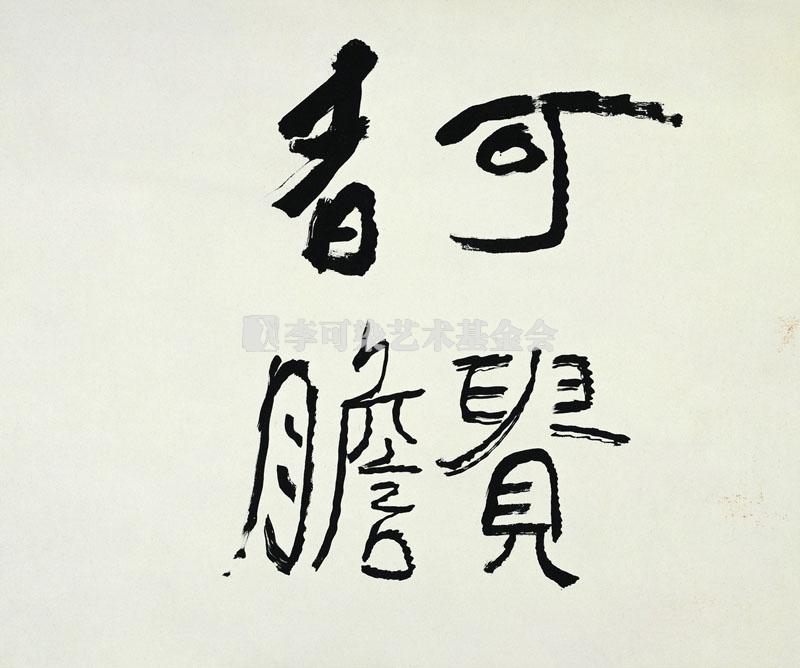 可貴
者膽
李可染艺术基金会